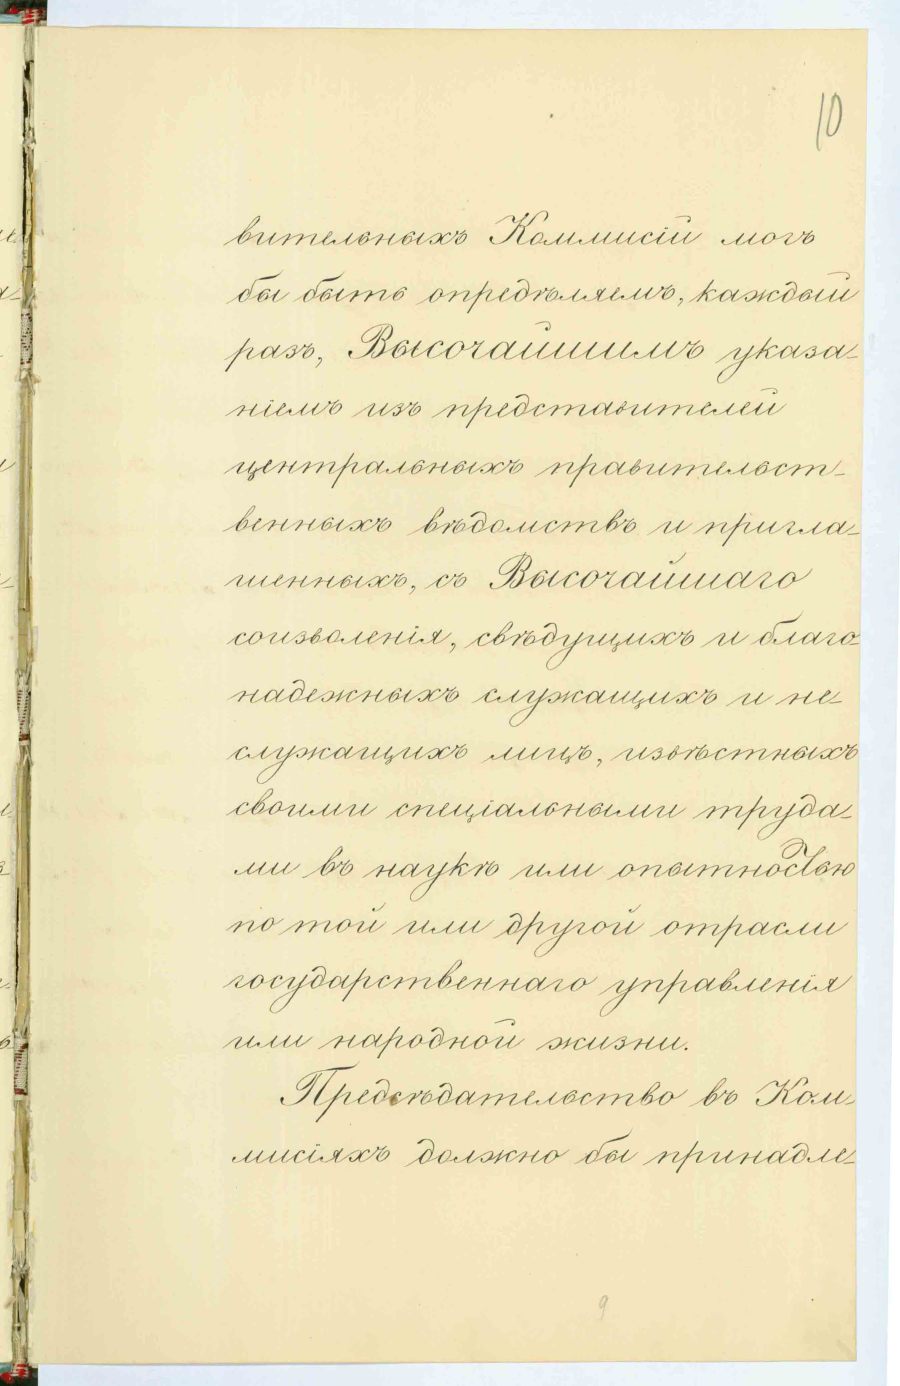 10
вительныхъ Коммисій могъ
бы быть опредѣляемъ, каждый
разъ, Высочайшимъ указа-
ніемъ изъ представителей
центральныхъ правительст-
венныхъ вѣдомствъ и пригла-
шенныхъ, съ Высочайшаго
соизволенія, свѣдущихъ и благо-
надежныхъ служащихъ и не-
служащихъ лицъ, извѣстныхъ
своими спеціальными труда-
ми въ наукѣ или опытностью
по той или другой отрасли
государственнаго управленія
или народной жизни.
Предсѣдательство въ Ком-
мисіяхъ должно бы принадле-
9